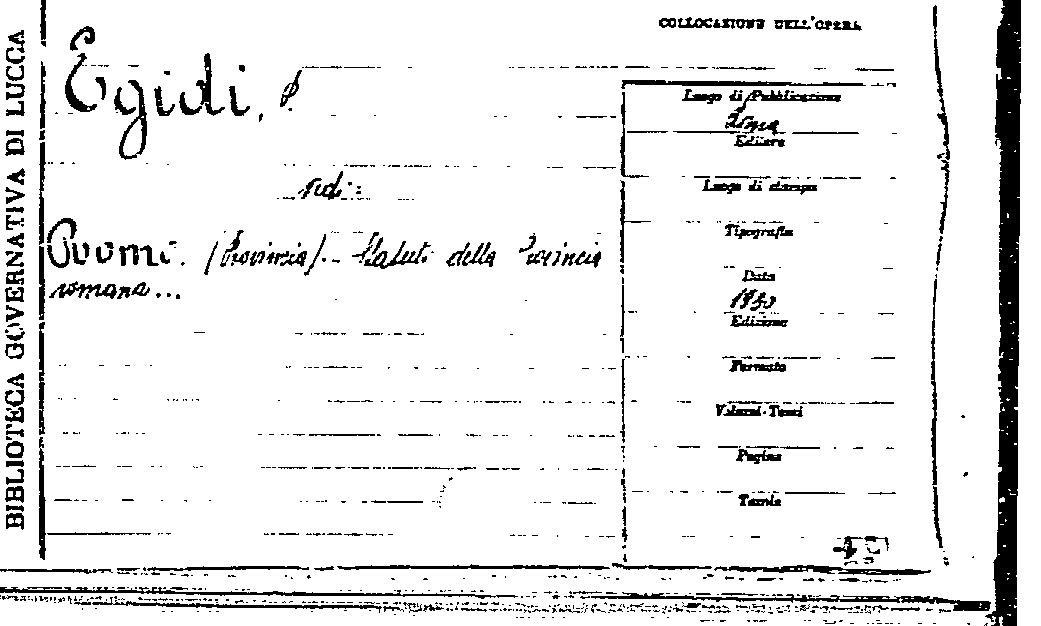 BIBLIOTECA GOVERNATIVA DI LUCCA
COLLOCAZIONE DELL'OPERA
Egidi, P.
vedi:
(Provincia). - Statuti della Provincia
romana...
Luogo di Pubblicazione
Roma
Editore
Luogo di stampa
Tipografia
Data
1930
Edizione
Formato
Volumi-Tomi
Pagine
Tavole